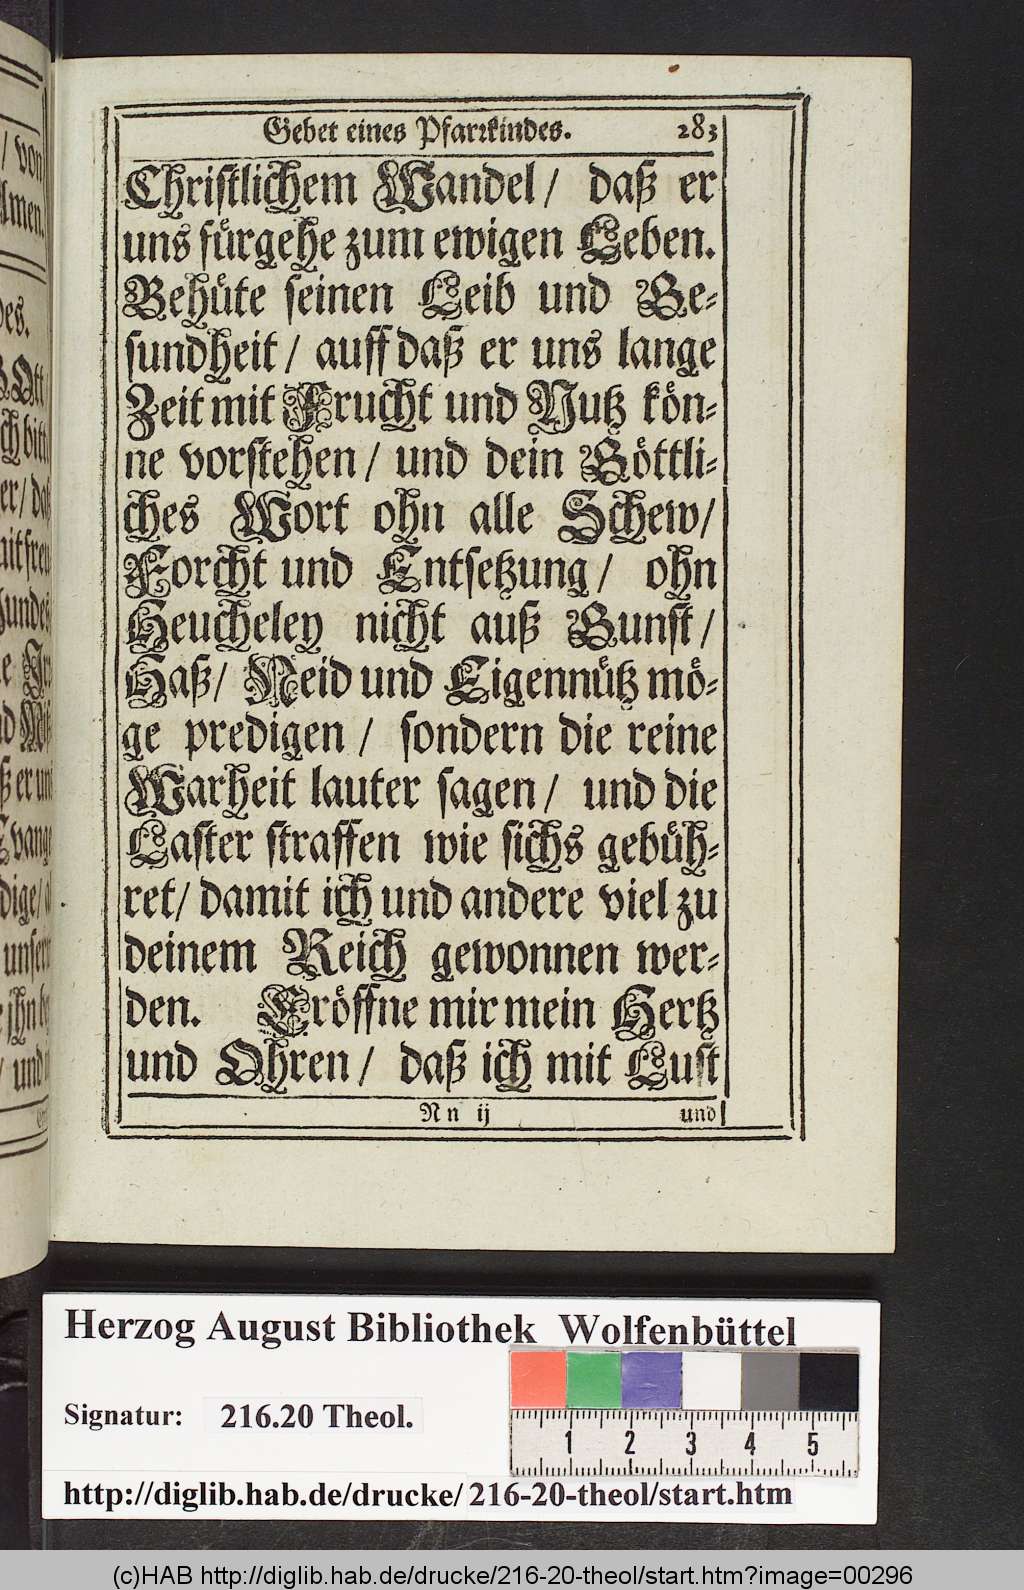 Gebet eines Pfarꝛkindes. 283
Christlichem Wandel / daß er
uns fürgehe zum ewigen Leben.
Behüte seinen Leib und Ge-
sundheit / auff daß er uns lange
Zeit mit Frucht und Nutz kön-
ne vorstehen / und dein Göttli-
ches Wort ohn alle Schew /
Forcht und Entsetzung / ohn
Heucheley nicht auß Gunst /
Haß / Neid und Eigennütz mö-
ge predigen / sondern die reine
Warheit lauter sagen / und die
Laster straffen wie sichs gebüh-
ret / damit ich und andere viel zu
deinem Reich gewonnen wer-
den. Eröffne mir mein Hertz
und Ohren / daß ich mit Lust
Nn ij und
Herzog August Bibliothek Wolfenbüttel
Signatur: 216.20 Theol.
1 2 3 4 5
http://diglib.hab.de/drucke/ 216-20-theol/start.htm
(c)HAB http://diglib.hab.de/drucke/216-20-theol/start.htm?image=00296